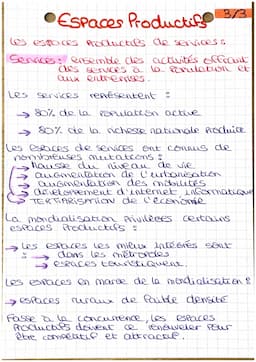 3/3
Espaces Productifs
Les espaces Productifs de services :
Services : ensemble des activités offrant
des services à la Population et
aux entreprises.
Les services représentent :
→ 80% de la Population active
→ 80% de la richesse nationale Produite
Les Espaces de services ont connus de
nombreuses mutations :
→ hausse du niveau de vie
→ augmentation de l'urbanisation
→ augmentation des mobilités
→ développement d'internet, informatique
→ TERTIARISATION de l'économie
La mondialisation privilégie certains
espaces Productifs :
→ Les espaces les mieux intégrés sont
→ dans les métropoles
→ espaces touristiques.
Les espaces en marge de la mondialisation :
→ espaces ruraux de faible densité
Fasse à la concurrence, les espaces
Productifs doivent se renouveler pour
être compétatif et attractif.